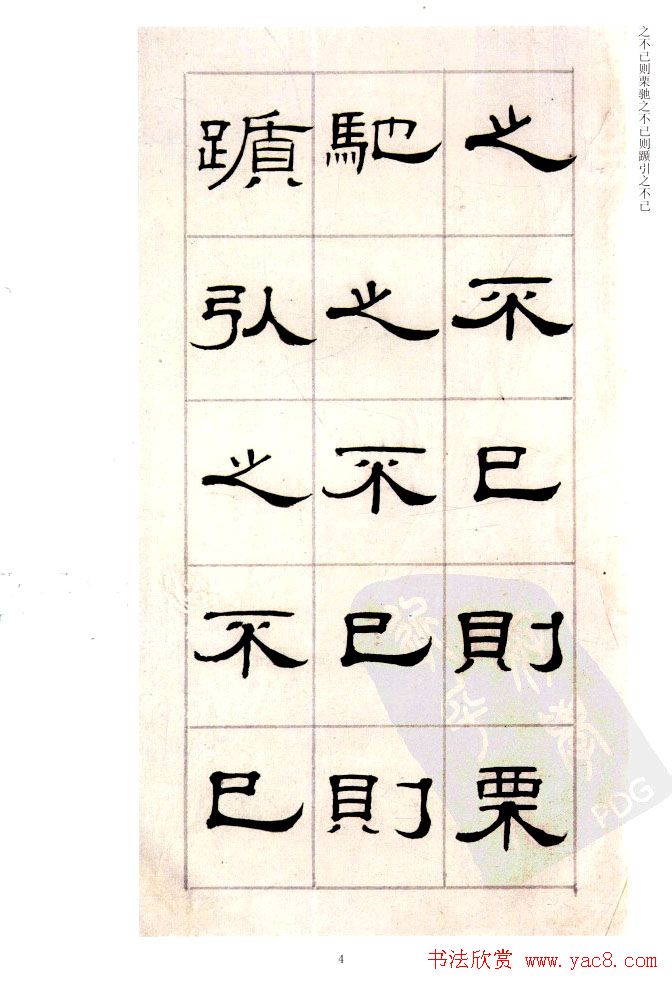 之不已则栗驰之不已则引之不已
之不已則栗
馳之不已則
引之不已
PDG
4
书法欣赏 www.yac8.com